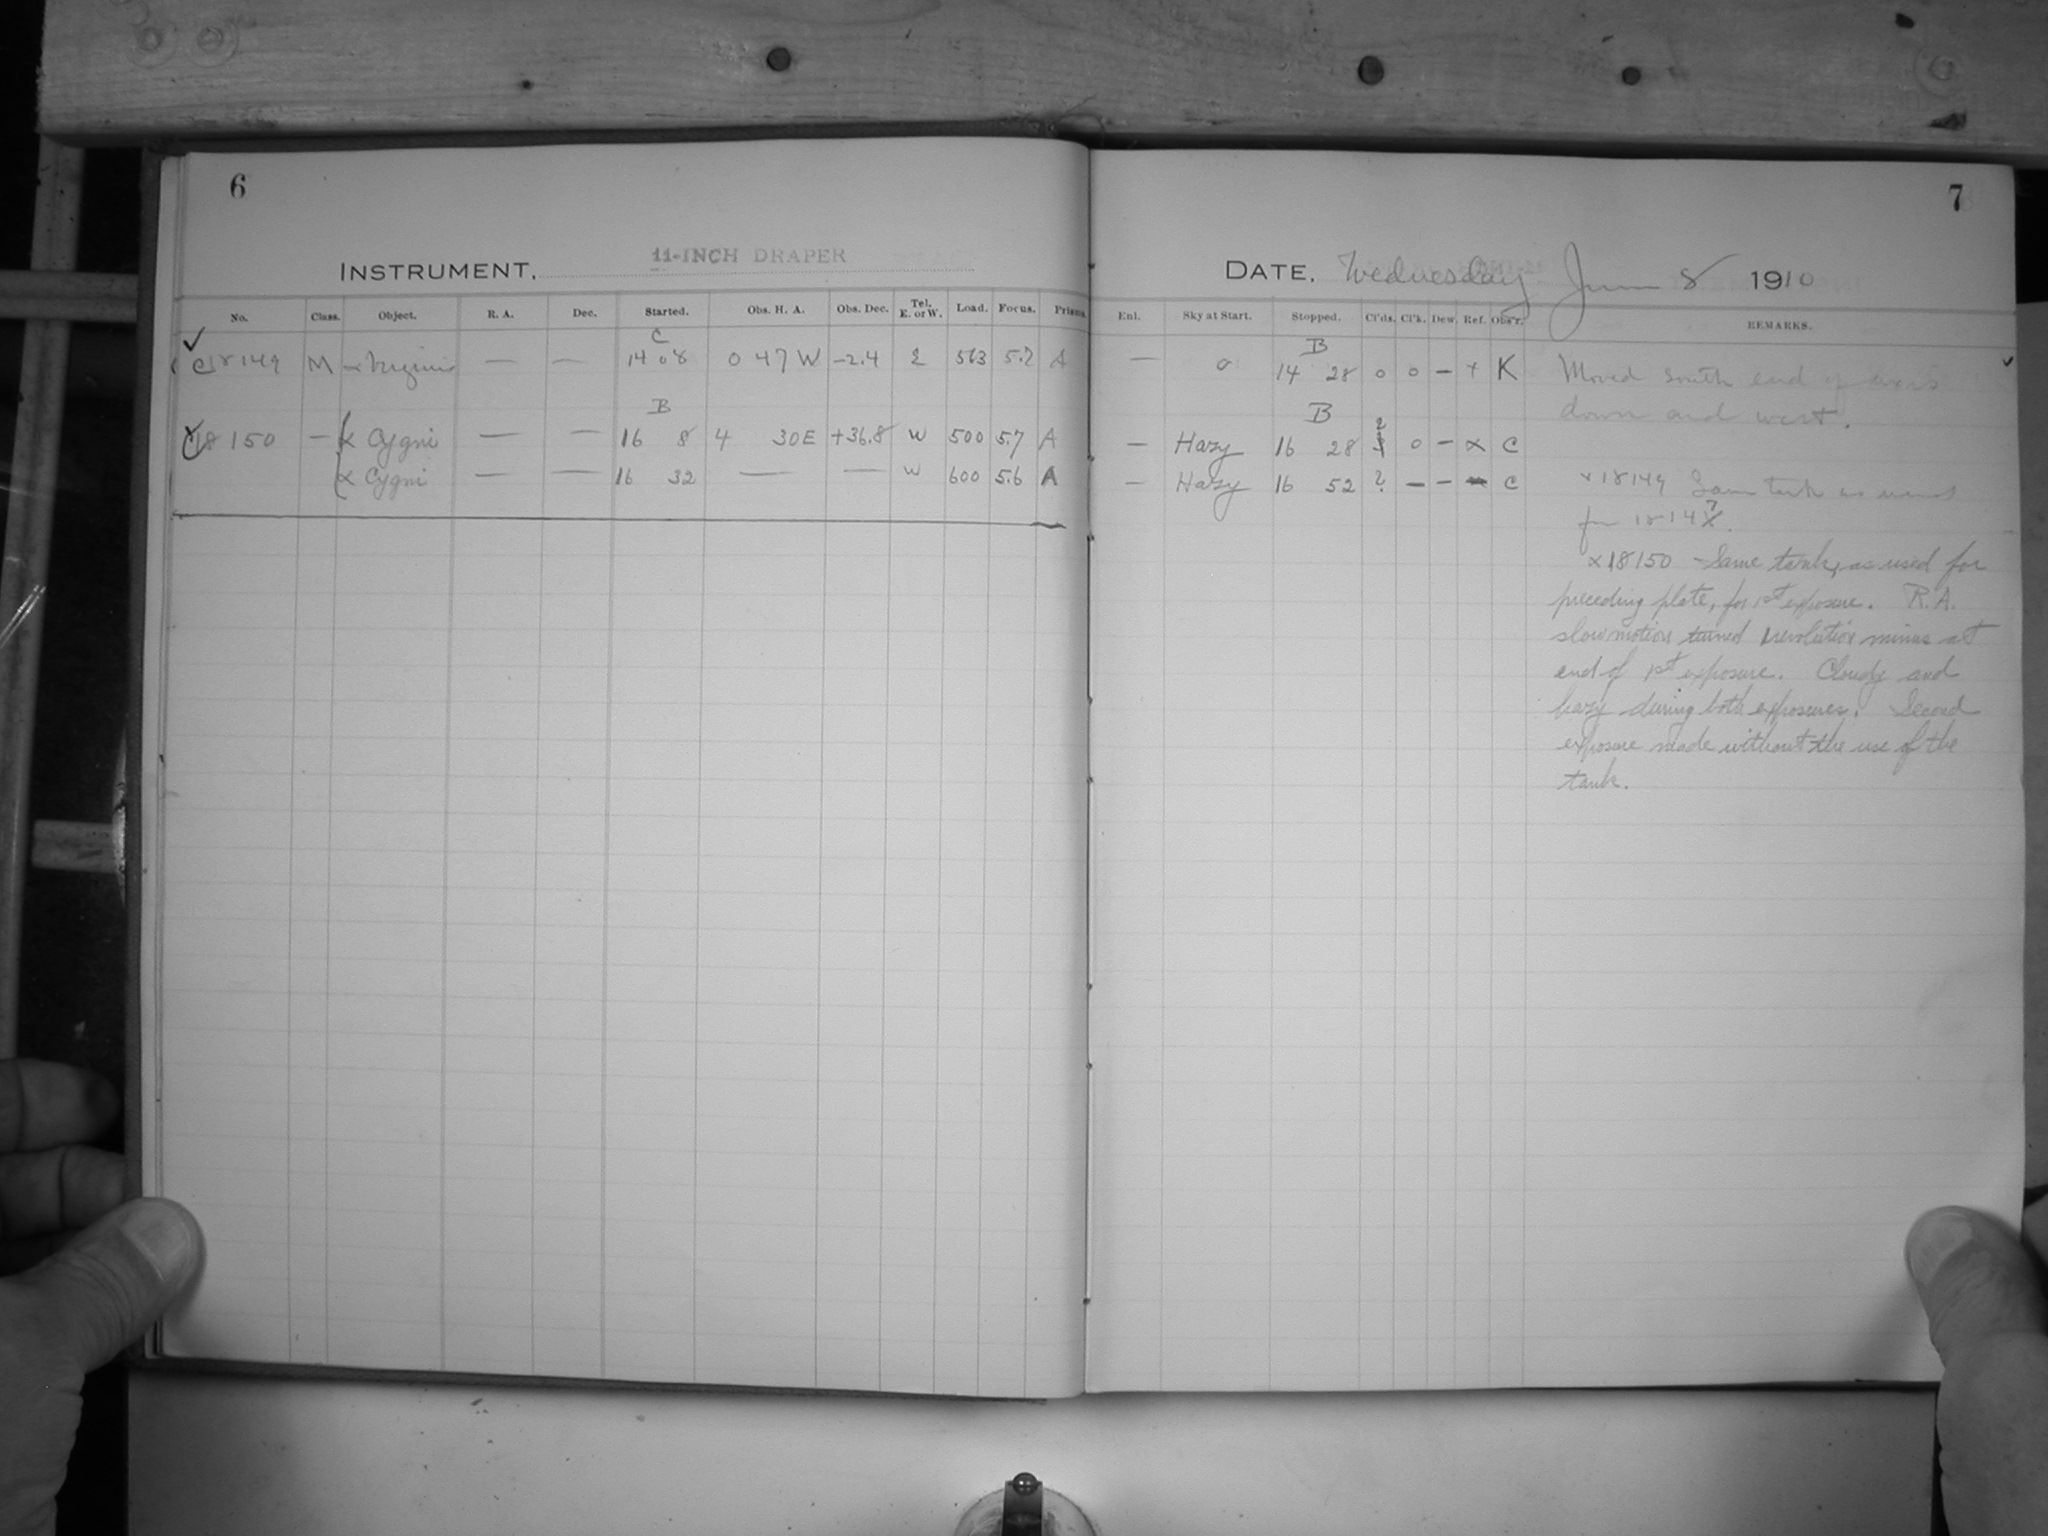 6
INSTRUMENT. 11-INCH DRAPER
No. Class. Object. R. A. Dec. Started. Obs. H. A. Obs. Dec. Tel. E. or W. Load. Focus. Prisms.
C
C18149 M α Virginis — — 14 08 0 47 W -2.4 563 5.7 A
B
C18150 — α Cygni — — 16 8 4 30 E +36.8 W 500 5.7 A
α Cygni — — 16 32 — — W 600 5.6 A
7
DATE. Wednesday June 8 1910
Enl. Sky at Start. Stopped. Cl'ds. Cl'k. Dew. Ref. Obs'r. REMARKS.
B
— 0 14 28 0 0 — x K Moved south end of axis
B down and west.
— Hazy 16 28 2 0 — x C
— Hazy 16 52 ? — — C
x 18149 Same tank as used
for 18147.
x 18150 - Same tank, as used for
preceding plate, for 1st exposure. R.A.
slow motion turned 1 revolution minus at
end of 1st exposure. Cloudy and
hazy during both exposures. Second
exposure made without the use of the
tank.